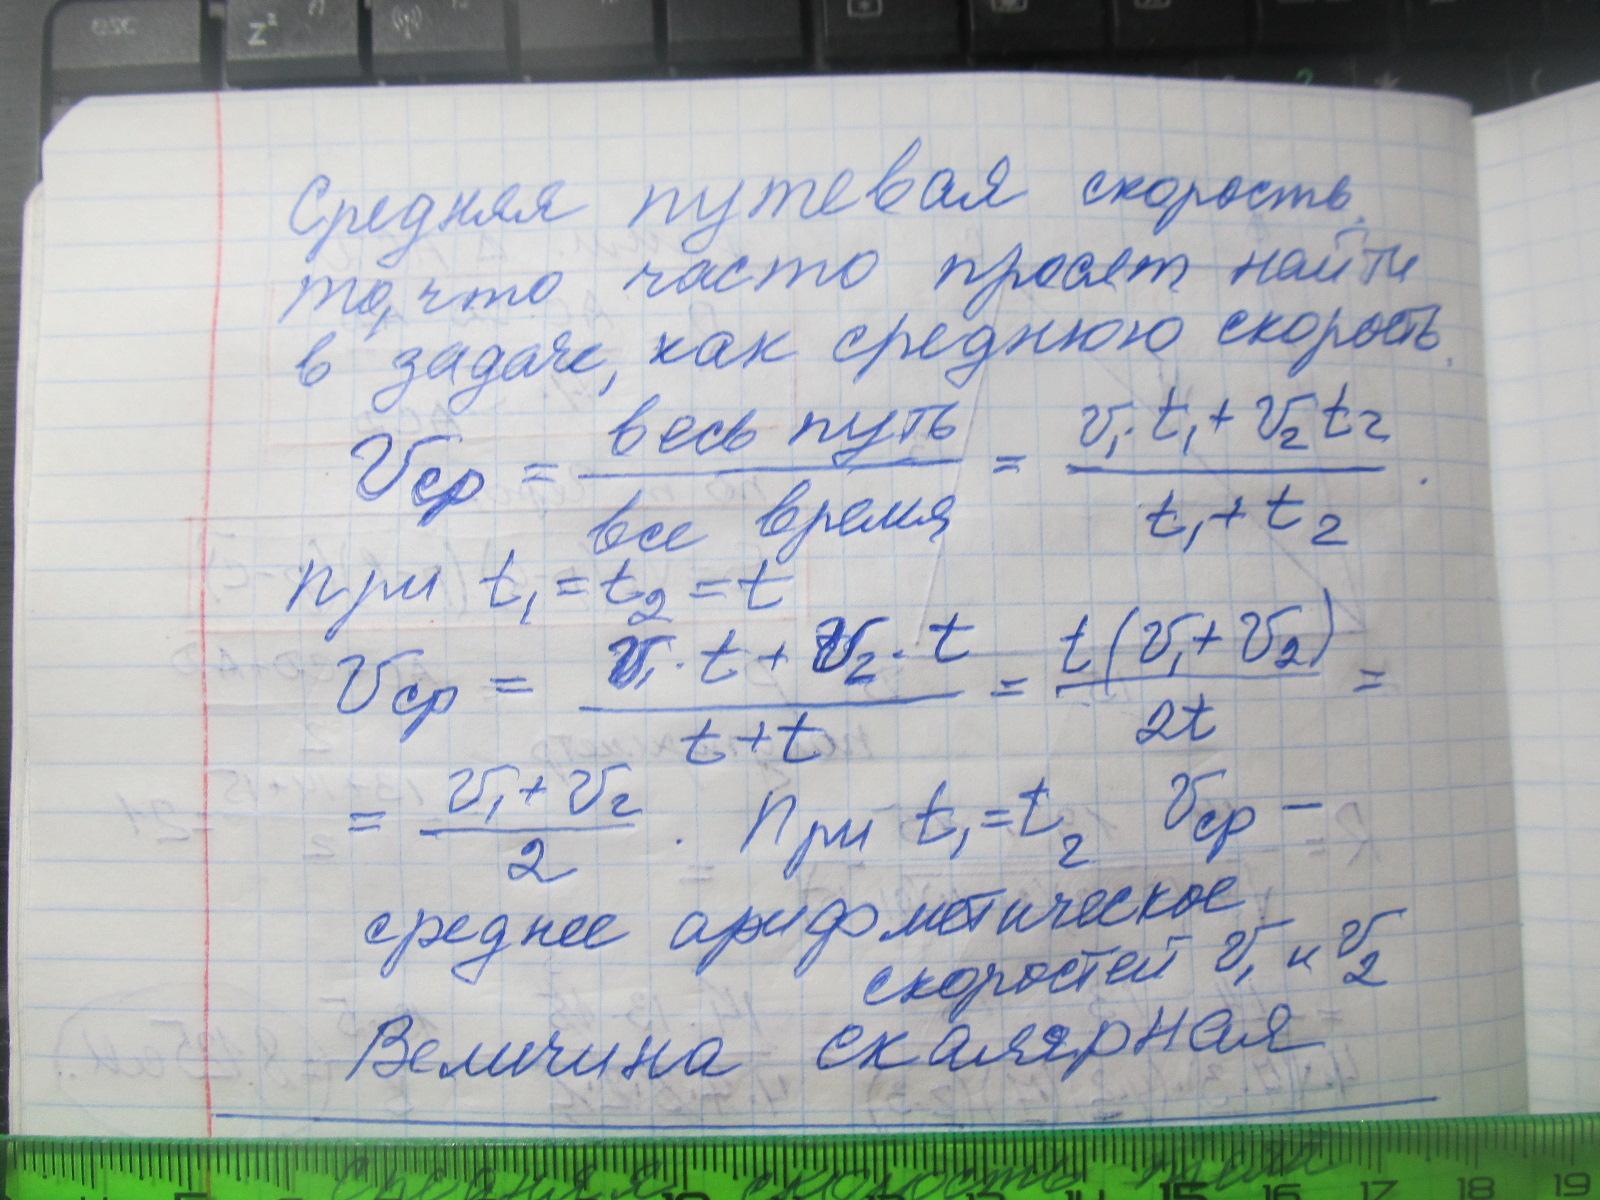 Средняя путевая скорость.
то, что часто просят найти
в задаче, как среднюю скорость.
Vср = весь путь / все время = (v₁·t₁ + v₂t₂) / (t₁ + t₂).
При t₁ = t₂ = t
Vср = (v₁·t + v₂·t) / (t + t) = t(v₁ + v₂) / 2t =
= (v₁ + v₂) / 2. При t₁ = t₂ Vср –
среднее арифметическое
скоростей v₁ и v₂
Величина скалярная
Средняя скорость
15 17 18 19